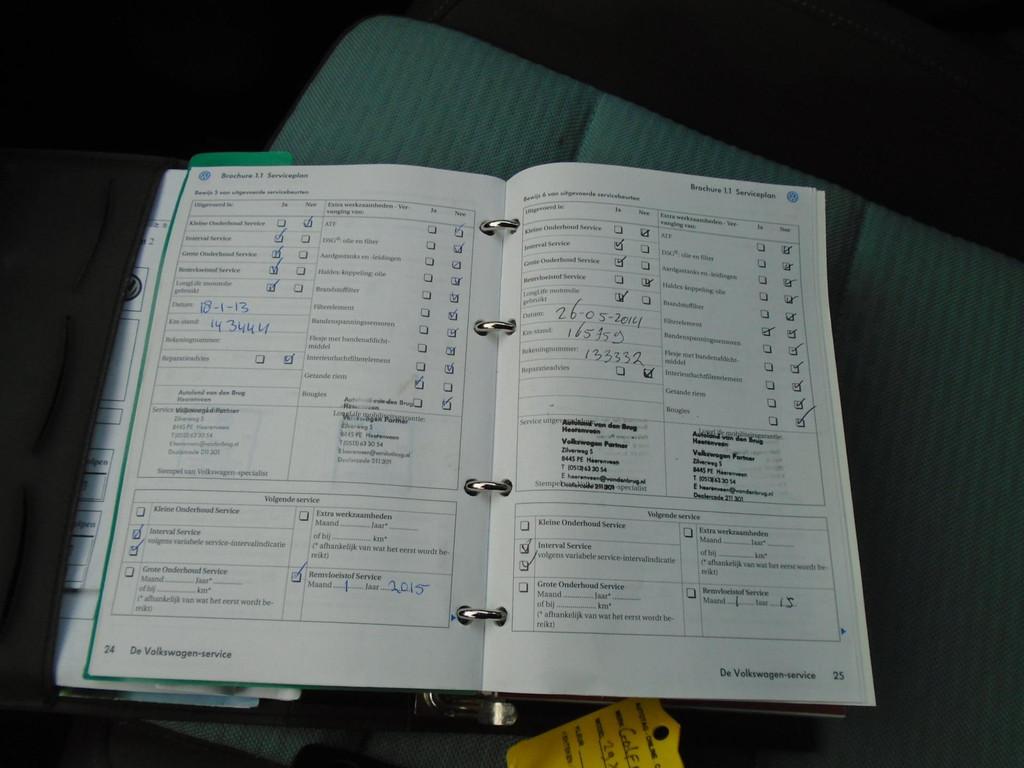 Brochure 1.1 Serviceplan
Bewijs 5 van uitgevoerde servicebeurten
Uitgevoerd is: Ja Nee
Kleine Onderhoud Service
Interval Service
Grote Onderhoud Service
Remvloeistof Service
LongLife motorolie
gebruikt
Datum: 18-1-13
Km-stand: 143444
Rekeningnummer:
Reparatieadvies
Extra werkzaamheden - Ver- Ja Nee
vanging van:
ATF
DSG®: olie en filter
Aardgastanks en -leidingen
Haldex-koppeling: olie
Brandstoffilter
Filterelement
Bandenspanningssensoren
Flesje met bandenafdicht-
middel
Interieurluchtfilterelement
Getande riem
Bougies
Autoland van den Brug
Heerenveen
Volkswagen Partner
Zilverweg 5
8445 PE Heerenveen
T (0513) 63 30 54
E heerenveen@vandenbrug.nl
Dealercode 211 301
Stempel van Volkswagen-specialist
LongLife mobiliteitsgarantie:
Autoland van den Brug
Heerenveen
Volkswagen Partner
Zilverweg 5
8445 PE Heerenveen
T (0513) 63 30 54
E heerenveen@vandenbrug.nl
Dealercode 211 301
Volgende service
Kleine Onderhoud Service
Interval Service
volgens variabele service-intervalindicatie
Grote Onderhoud Service
Maand Jaar*
of bij km*
(* afhankelijk van wat het eerst wordt be-
reikt)
Extra werkzaamheden
Maand Jaar*
of bij km*
(* afhankelijk van wat het eerst wordt be-
reikt)
Remvloeistof Service
Maand 1 Jaar 2015
24 De Volkswagen-service
Brochure 1.1 Serviceplan
Bewijs 6 van uitgevoerde servicebeurten
Uitgevoerd is: Ja Nee
Kleine Onderhoud Service
Interval Service
Grote Onderhoud Service
Remvloeistof Service
LongLife motorolie
gebruikt
Datum: 26-05-2014
Km-stand: 165759
Rekeningnummer: 133332
Reparatieadvies
Extra werkzaamheden - Ver- Ja Nee
vanging van:
ATF
DSG®: olie en filter
Aardgastanks en -leidingen
Haldex-koppeling: olie
Brandstoffilter
Filterelement
Bandenspanningssensoren
Flesje met bandenafdicht-
middel
Interieurluchtfilterelement
Getande riem
Bougies
Autoland van den Brug
Heerenveen
Volkswagen Partner
Zilverweg 5
8445 PE Heerenveen
T (0513) 63 30 54
E heerenveen@vandenbrug.nl
Dealercode 211 301
LongLife mobiliteitsgarantie:
Autoland van den Brug
Heerenveen
Volkswagen Partner
Zilverweg 5
8445 PE Heerenveen
T (0513) 63 30 54
E heerenveen@vandenbrug.nl
Dealercode 211 301
Volgende service
Kleine Onderhoud Service
Interval Service
volgens variabele service-intervalindicatie
Grote Onderhoud Service
Maand Jaar*
of bij km*
(* afhankelijk van wat het eerst wordt be-
reikt)
Extra werkzaamheden
Maand Jaar*
of bij km*
(* afhankelijk van wat het eerst wordt be-
reikt)
Remvloeistof Service
Maand 1 Jaar 15
De Volkswagen-service 25
Golf